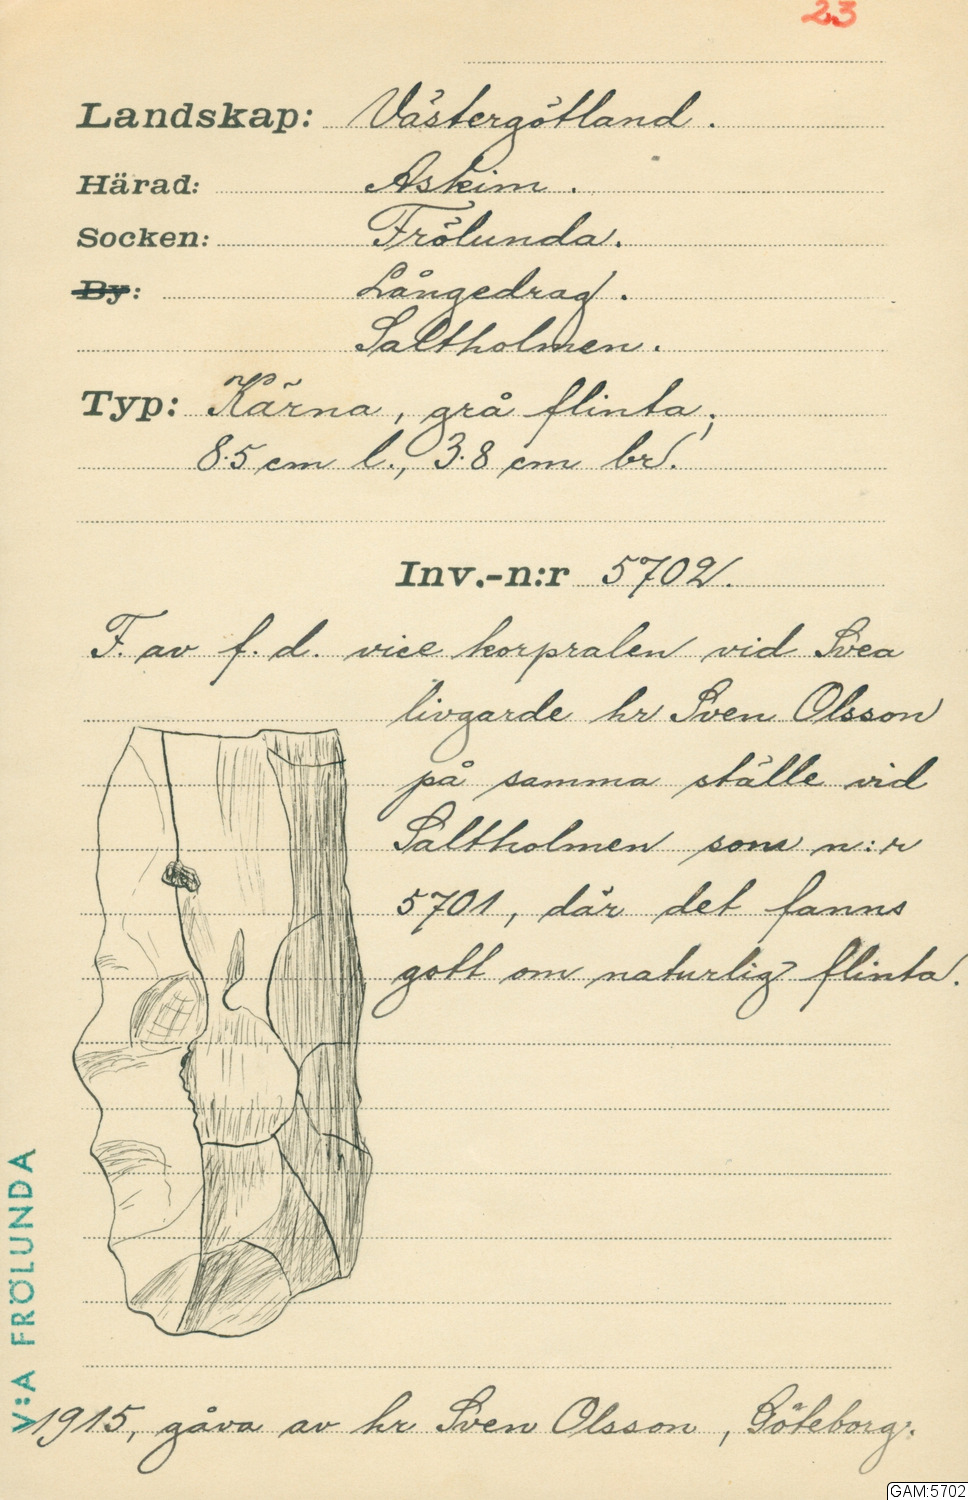 23
Landskap: Västergötland.
Härad: Askim.
Socken: Frölunda.
By: Långedrag.
Saltholmen.
Typ: Kärna, grå flinta;
8.5 cm l., 3.8 cm br.
Inv.-n:r 5702.
F. av f. d. vice korpralen vid Svea
livgarde hr Sven Olsson
på samma ställe vid
Saltholmen som n:r
5701, där det fanns
gott om naturlig flinta.
V:A FRÖLUNDA
1915, gåva av hr Sven Olsson, Göteborg.
GAM:5702